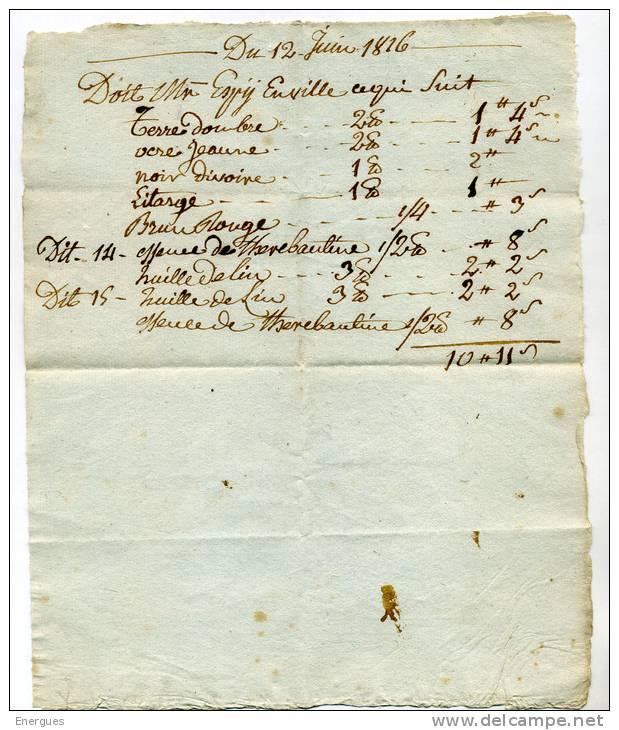 Du 12 Juin 1826
Doit Mr Espÿ Enville ce qui Suit
Terre dombre 2 lb 1 ₶ 4 s
ocre Jeaune 2 lb 1 ₶ 4 s
noir divoire 1 lb 2 ₶
Litarge 1 lb 1 ₶
Brun Rouge 1/4 ₶ 3 s
Dit - 14 - essence de Therebautine 1/2 lb ₶ 8 s
huille de Lin 3 lb 2 ₶ 2 s
Dit 15 - huille de Lin 3 lb 2 ₶ 2 s
essence de Therebautine 1/2 lb ₶ 8 s
10 ₶ 11 s
Energues
www.delcampe.net